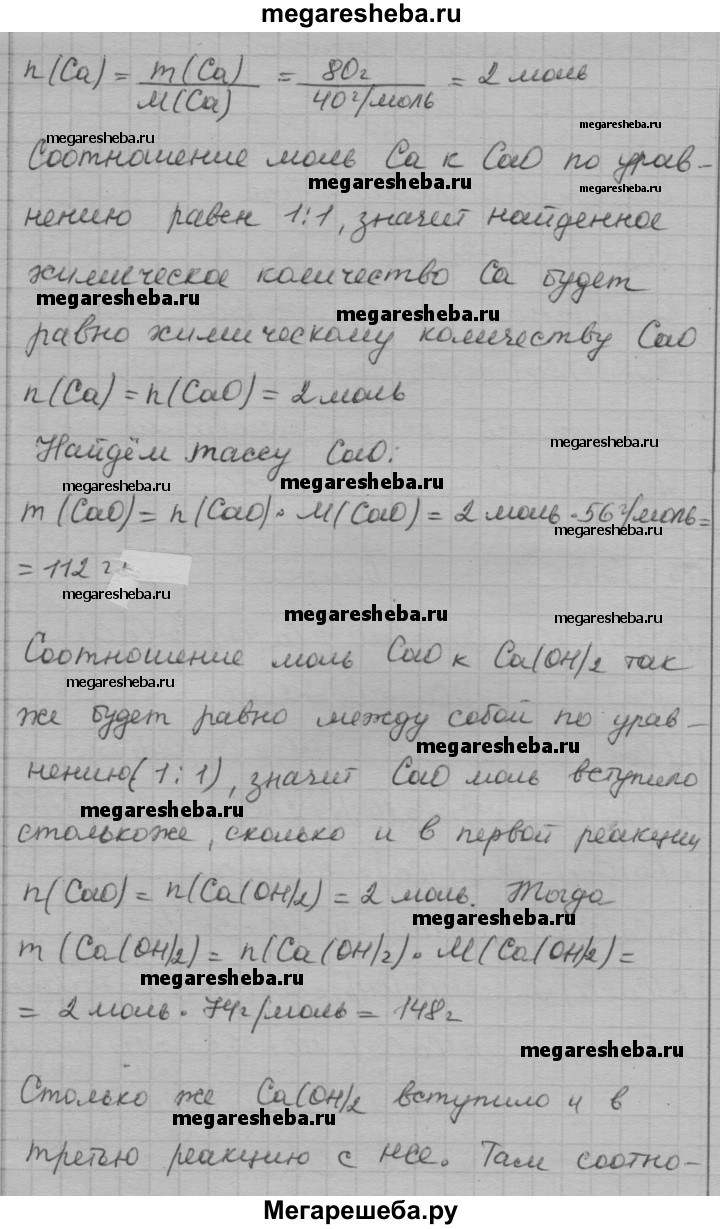 megaresheba.ru
n(Ca) = m(Ca) / M(Ca) = 80г / 40г/моль = 2 моль
megaresheba.ru
megaresheba.ru
Соотношение моль Ca к CaO по урав-
megaresheba.ru
megaresheba.ru
нению равен 1:1, значит найденное
химическое количество Ca будет
megaresheba.ru
megaresheba.ru
равно химическому количеству CaO
n(Ca) = n(CaO) = 2 моль
Найдём массу CaO:
megaresheba.ru
megaresheba.ru
megaresheba.ru
m(CaO) = n(CaO) · M(CaO) = 2 моль · 56 г/моль =
megaresheba.ru
= 112 г.
megaresheba.ru
megaresheba.ru
megaresheba.ru
Соотношение моль CaO к Ca(OH)2 так
megaresheba.ru
же будет равно между собой по урав-
megaresheba.ru
нению (1:1), значит CaO моль вступило
megaresheba.ru
столькоже, сколько и в первой реакции
n(CaO) = n(Ca(OH)2) = 2 моль. Тогда
megaresheba.ru
m(Ca(OH)2) = n(Ca(OH)2) · M(Ca(OH)2) =
megaresheba.ru
= 2 моль · 74г/моль = 148г
megaresheba.ru
Столько же Ca(OH)2 вступило и в
megaresheba.ru
третью реакцию с нее. Там соотно-
Мегарешеба.ру